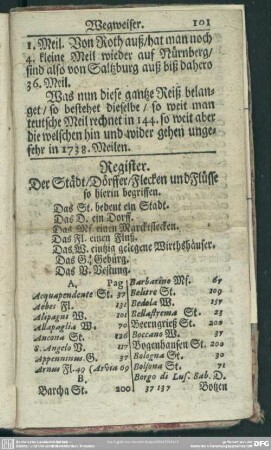 Wegweiser. 101
1. Meil. Von Roth auß/hat man noch
4. kleine Meil wieder auf Nürnberg/
sind also von Saltzburg auß biß dahero
36. Meil.
Was nun diese gantze Reiß belan-
get/ so bestehet dieselbe/ so weit man
teutsche Meil rechnet in 144. so weit aber
die welschen hin und wider gehen unge-
fehr in 1738. Meilen.
Register.
Der Städt/Dörffer/Flecken und Flüsse
so hierin begriffen.
Das St. bedeut ein Stadt.
Das D. ein Dorff.
Das Mf. einen Marcktflecken.
Das Fl. einen Fluß.
Das W. eintzig gelegene Wirthshäuser.
Das G. Gebürg.
Das V. Vestung.
A, Pag
Acquapendente St. 37
Aebes Fl. 131
Alepagus W. 101
Allapaglia W. 70
Ancona St. 126
S. Angelo V. 117
Appenninus G. 37
Arnus Fl. 49 (Arvia 69
B.
Barcha St. 200
Barbarino Mf. 67
Belitre St. 109
Bedola W. 137
Bellastrema St. 23
Beerngrieß St. 200
Boccano W. 37
Bogenhausen St. 200
Bologna St. 30
Bolsena St. 71
Borgo di Luf. Sab. D.
37 137 Botzen